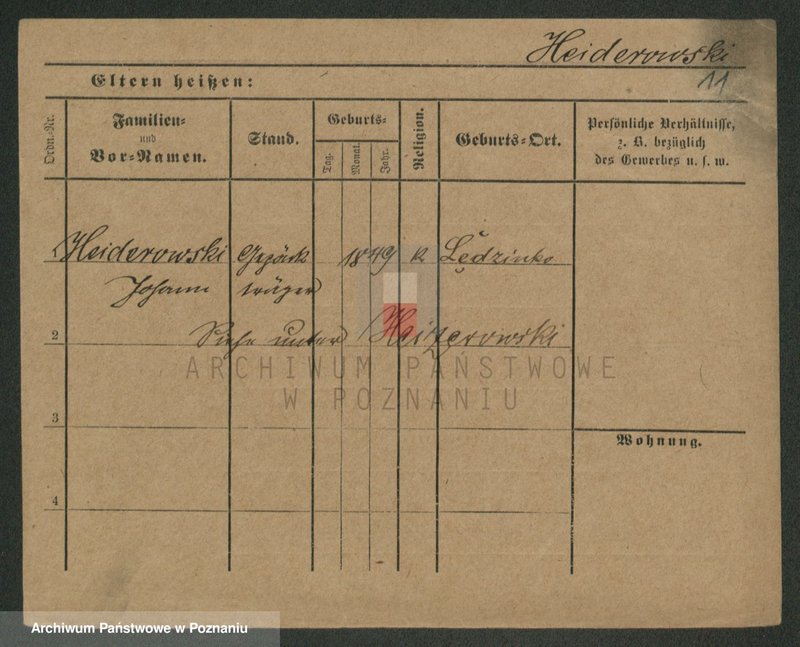 Heiderowski
11
Eltern heißen:
Ordn.-Nr.
Familien-
und
Vor-Namen.
Stand.
Geburts-
Tag.
Monat.
Jahr.
Religion.
Geburts-Ort.
Persönliche Verhältnisse,
z. B. bezüglich
des Gewerbes u. s. w.
1 Heiderowski Gepäck 1849 k Lędzinko
Johann träger
2 Siehe unter Heizerowski
ARCHIWUM PAŃSTWOWE
W POZNANIU
3
Wohnung.
4
Archiwum Państwowe w Poznaniu